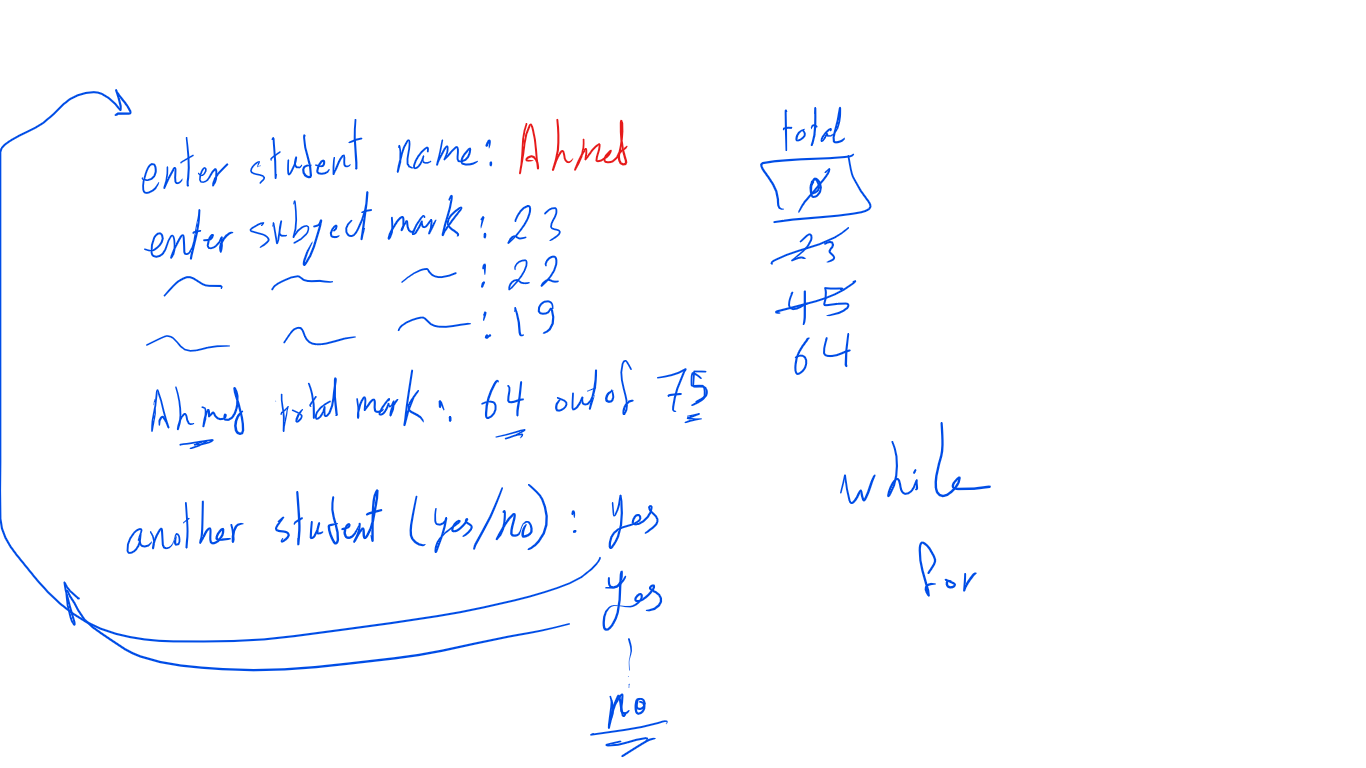 enter student name: Ahmed
enter subject mark: 23
: 22
: 19
Ahmed total mark: 64 out of 75
another student (yes/no): yes
yes
no
total
0
23
45
64
while
for